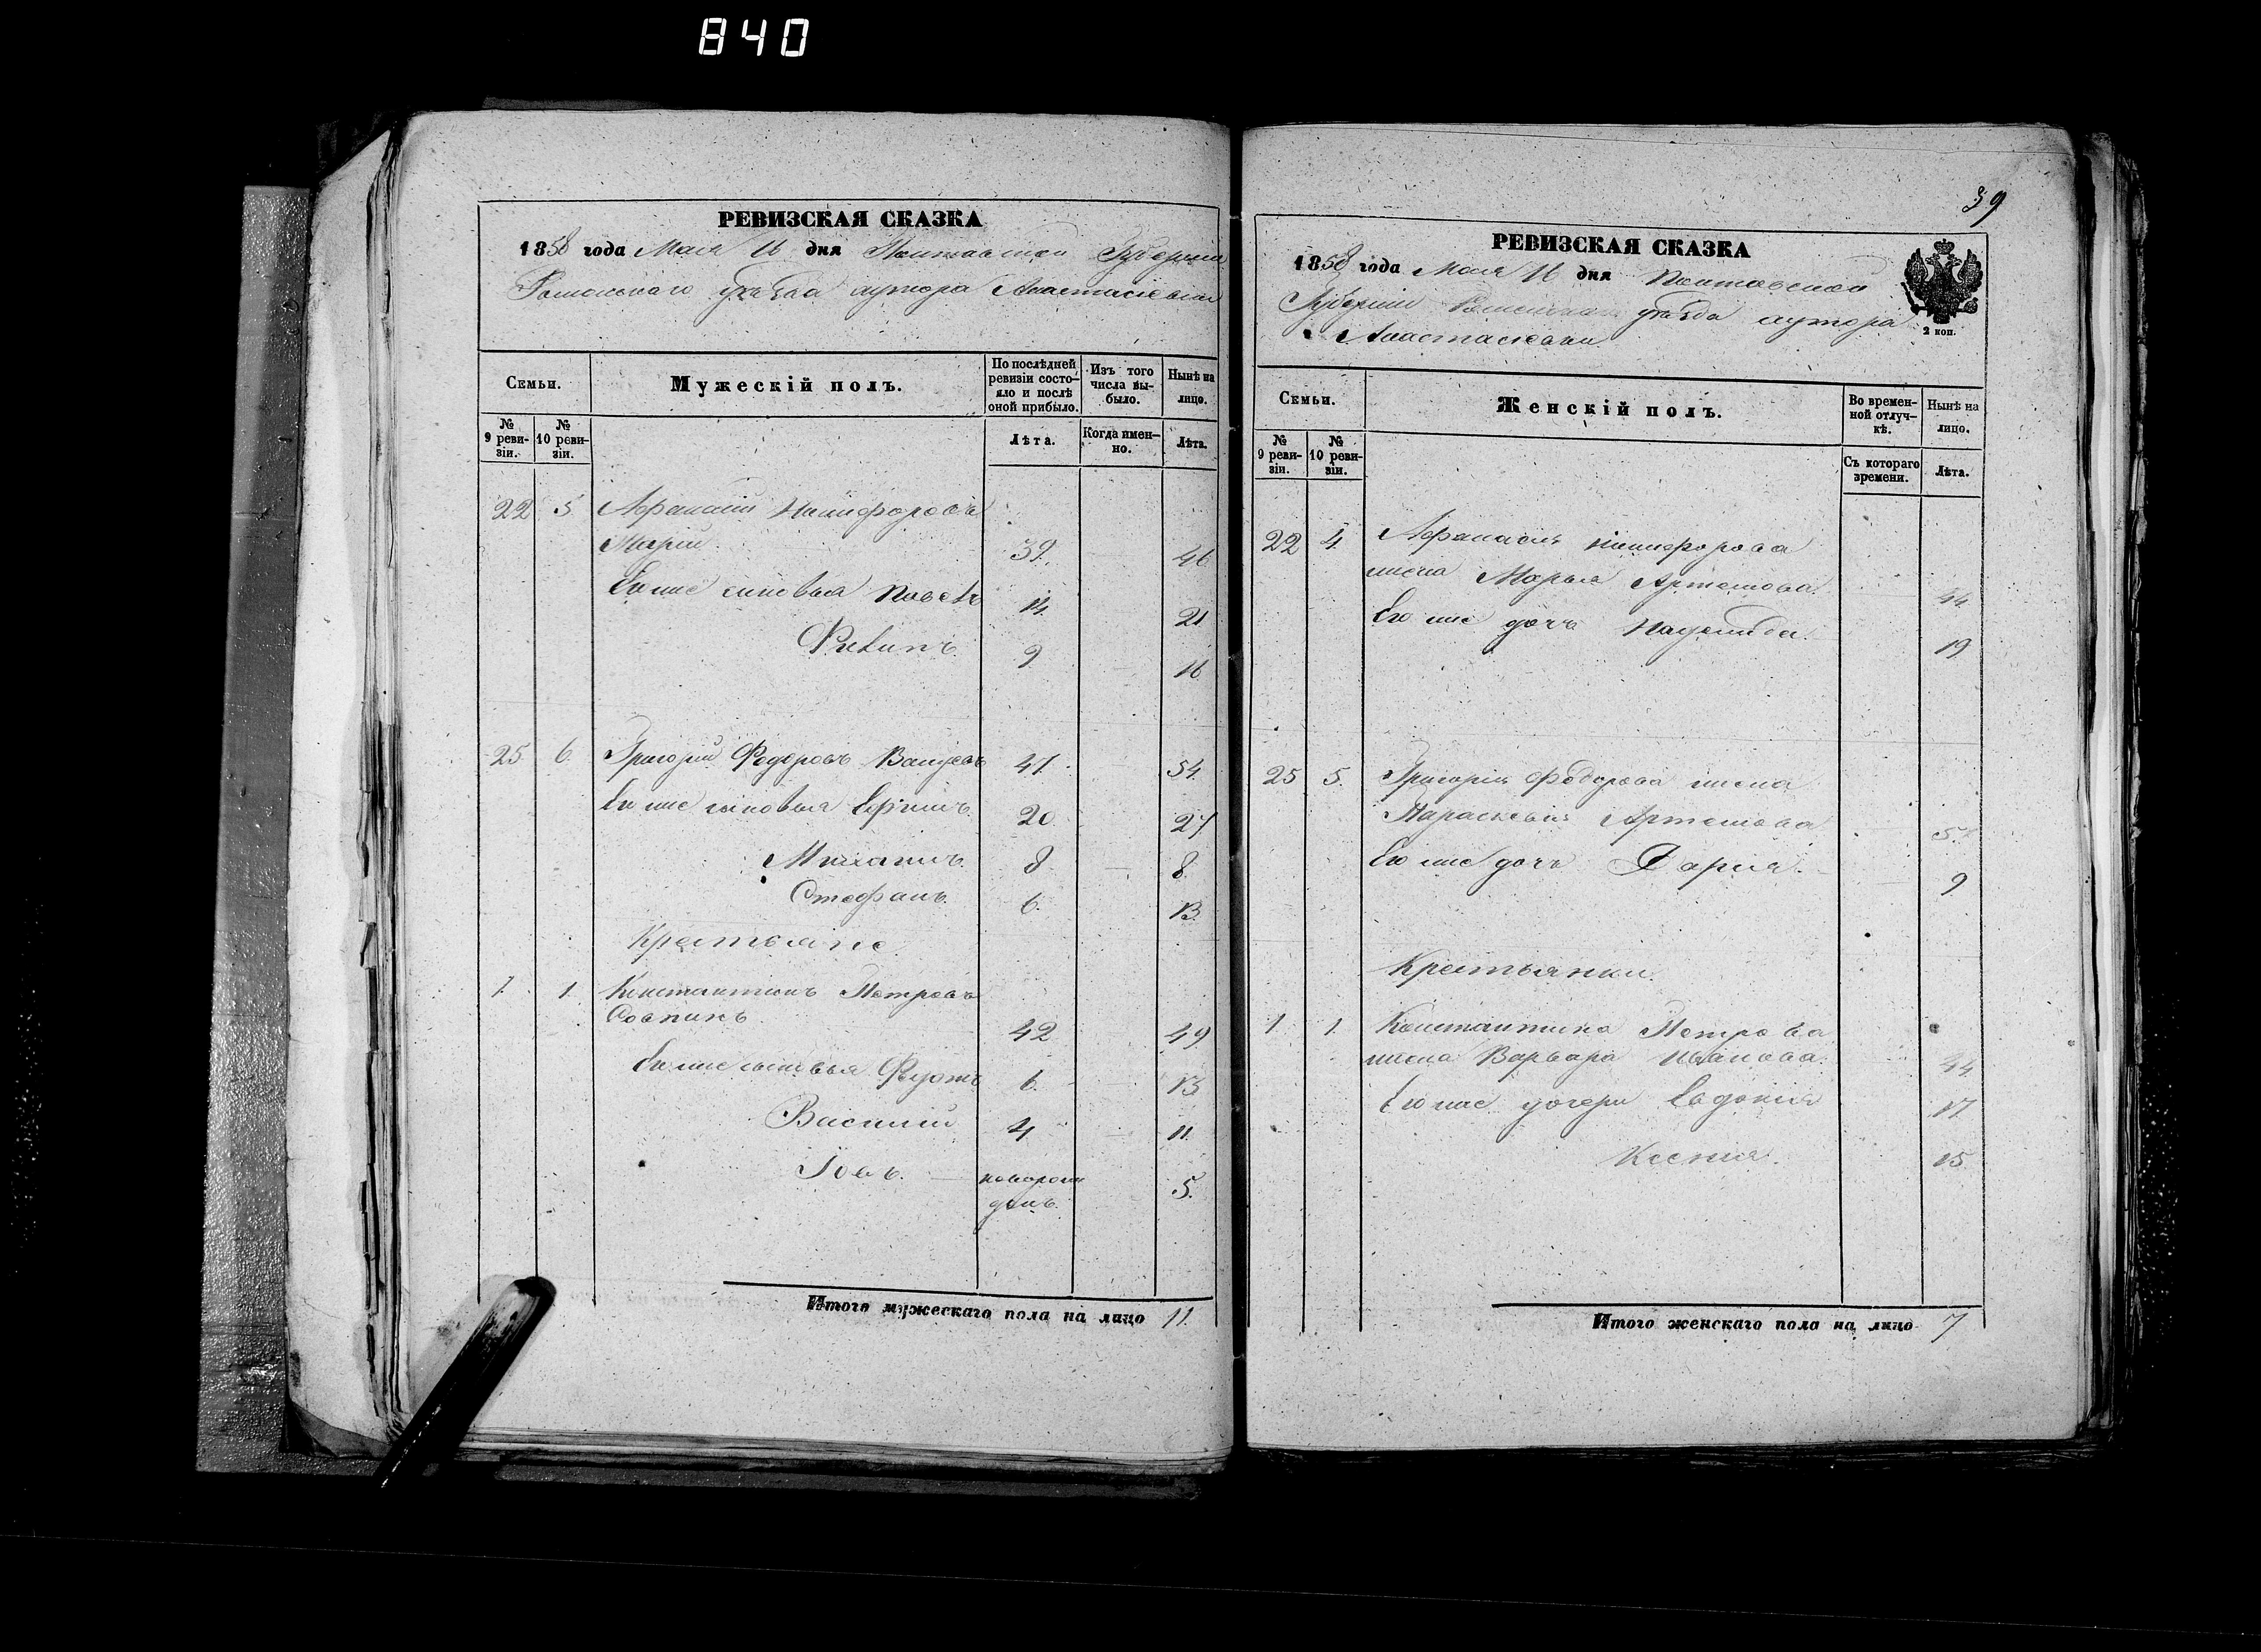 840
39
РЕВИЗСКАЯ СКАЗКА
1858 года Мая 16 дня Полтавской Губернии
Роменского уѣзда хутора Анастасіевки
Семьи.
Мужескій полъ.
По послѣдней ревизіи состояло и послѣ оной прибыло.
Изъ того числа выбыло.
Нынѣ на лицо.
№ 9 ревизіи.
№ 10 ревизіи.
Лѣта.
Когда именно.
Лѣта.
22 5 Афанасій Никифоровъ
39. 46
Его же сыновья Павелъ 14. 21
9 16
25 6. Григорій Федоровъ 47. 54.
Его же сыновья Ефимъ 20 27
Михаилъ. 8 8
Стефанъ. 6. 13.
Крестьяне
1. 1. Константинъ Петровъ
42 49
Его же сыновья Федотъ 6. 13
Василій 4 11.
Іовъ. новорож
денъ. 5.
Итого мужескаго пола на лицо 11.
РЕВИЗСКАЯ СКАЗКА
1858 года Мая 16 дня Полтавской
Губерніи Роменскаго уѣзда хутора
Анастасіевки
2 коп.
Семьи.
Женскій полъ.
Во временной отлучкѣ.
Нынѣ на лицо.
№ 9 ревизіи.
№ 10 ревизіи.
Съ котораго времени.
Лѣта.
22 4. Афанасія Никифорова
жена Марья Артемова. 44
Его же дочь Надежда. 19
25 5. Григорія Федорова жена
Параскевія Артемова
Его же дочь Дарія. 9
Крестьянки.
1 1. Константина Петрова
жена Варвара Иванова. 44
Его же дочери Евдокія 17.
Ксенія. 15
Итого женскаго пола на лицо 7